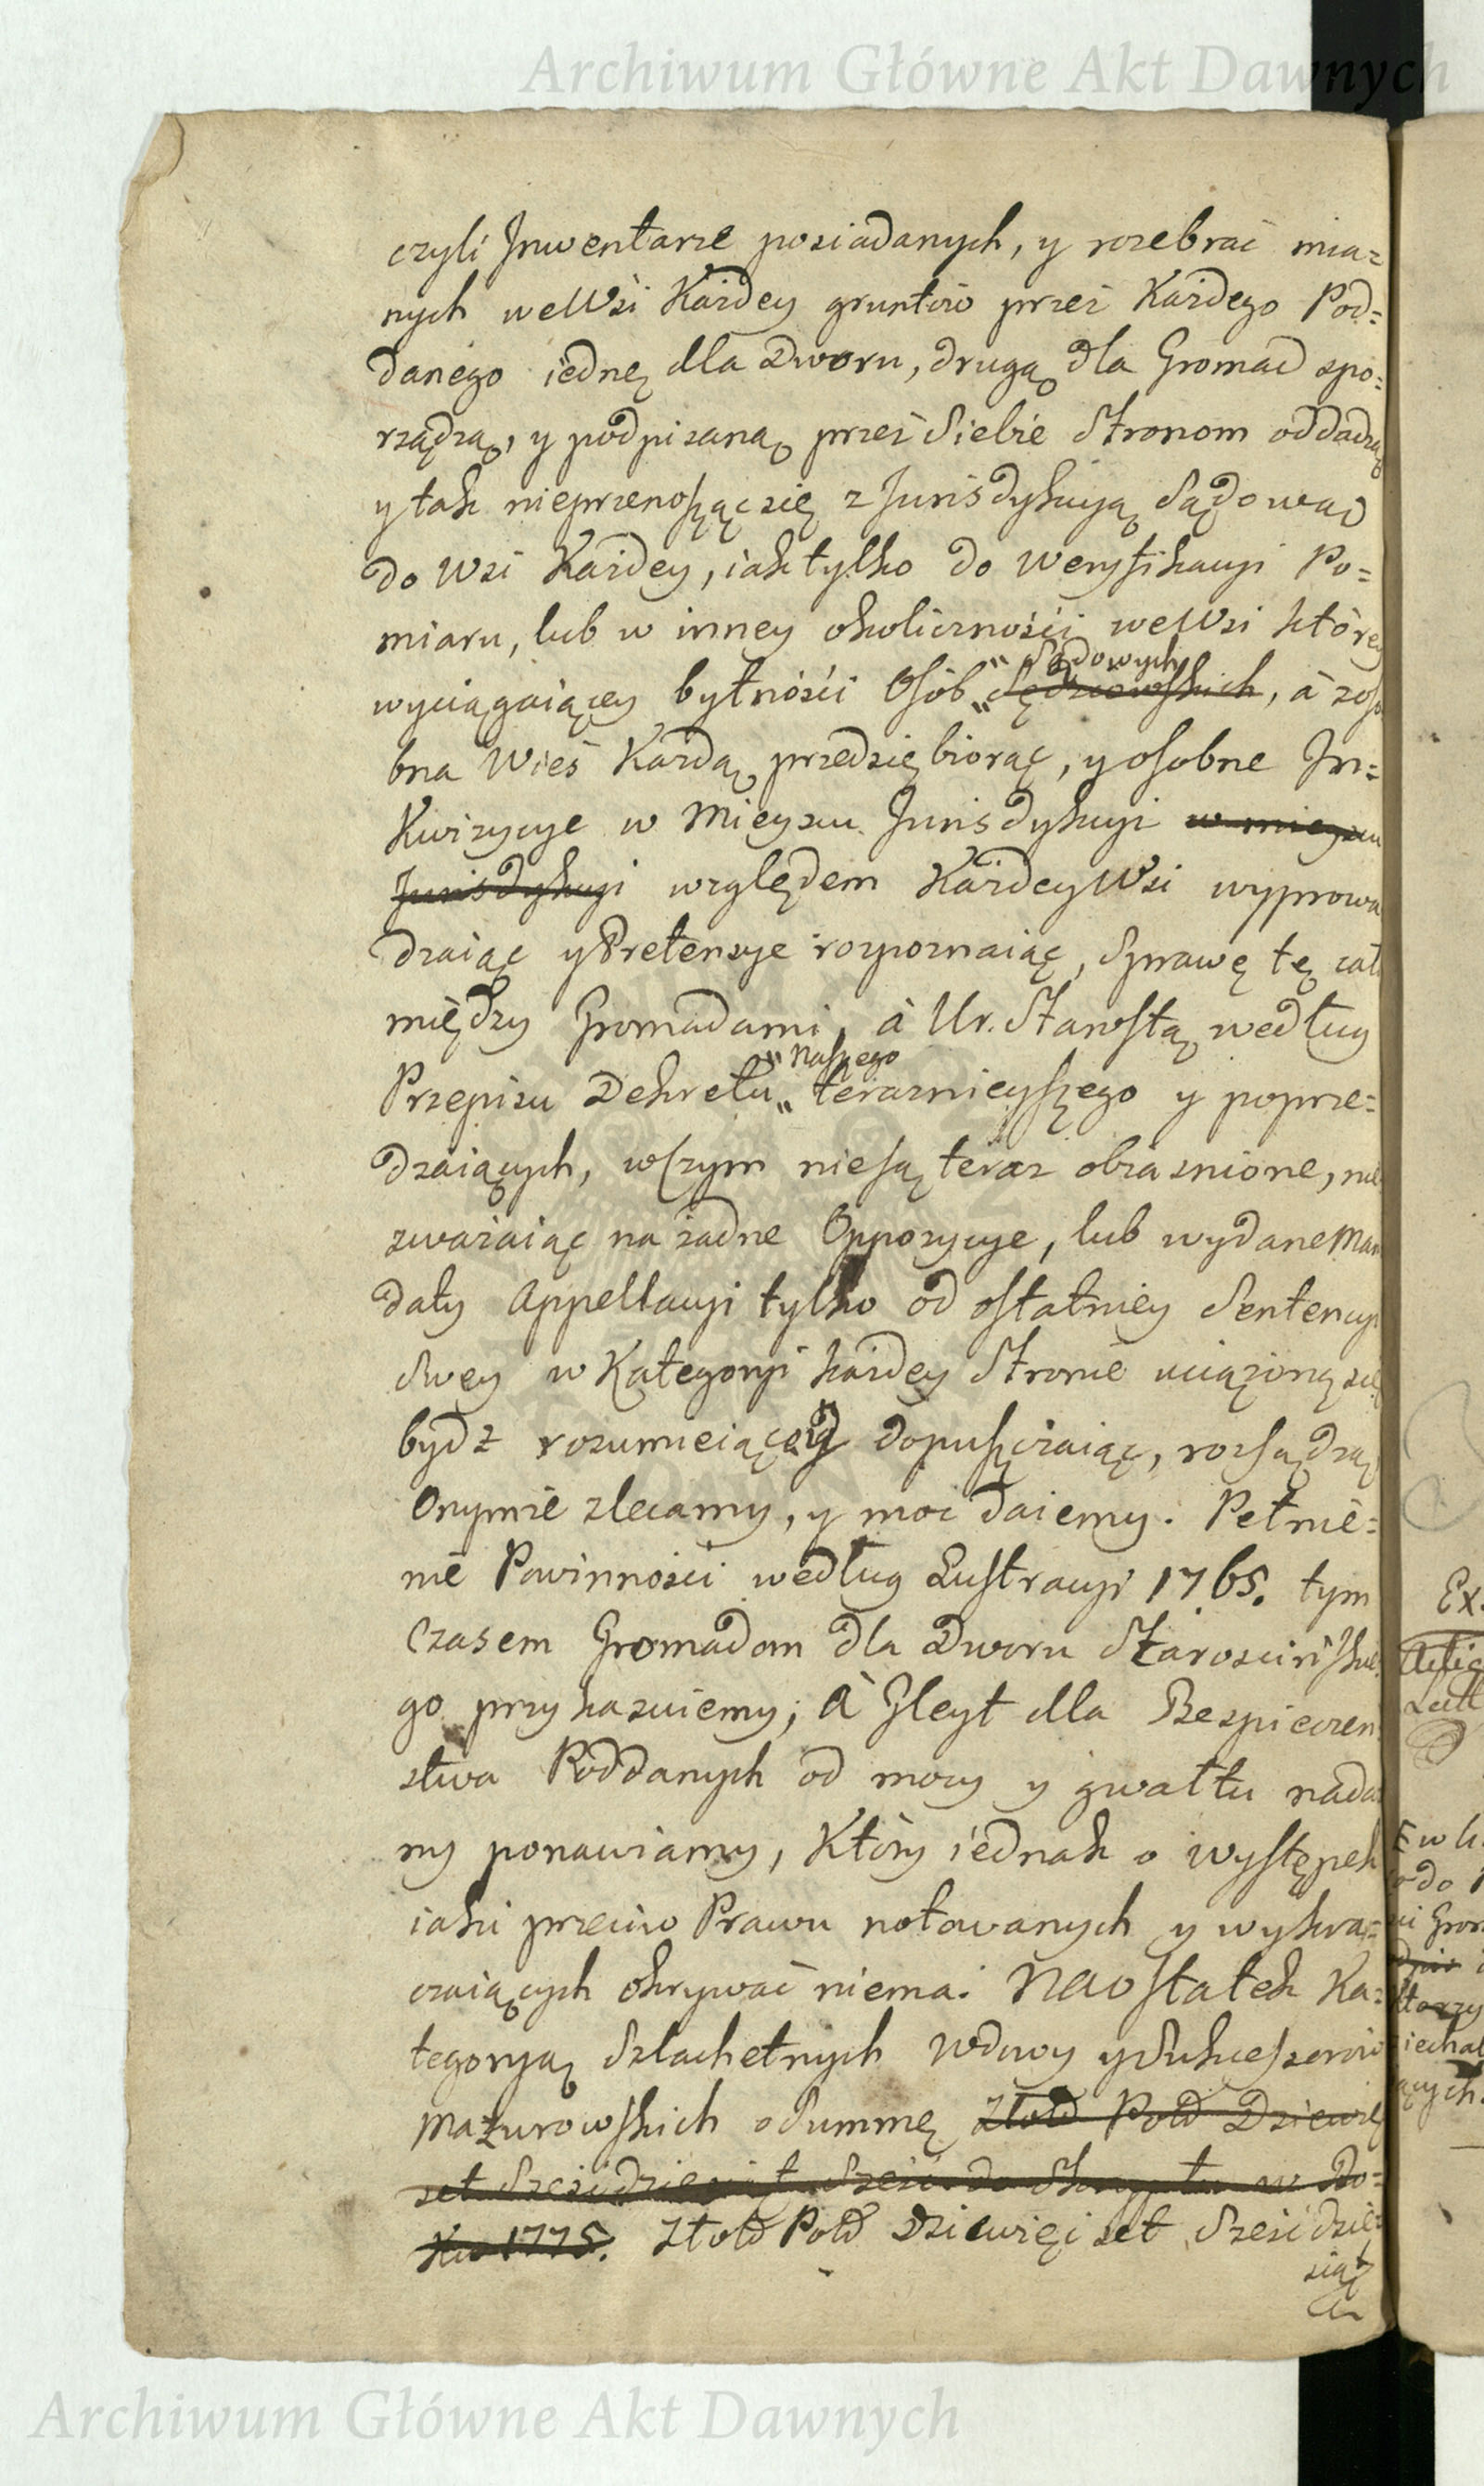 Archiwum Główne Akt Dawnych
czyli Inwentarze posiadanych, y rozebrać mia=
nych weWsi Każdey gruntów przez Każdego Pod=
danego iednę dla Dworu, drugą dla Gromad spo=
rządzą, y podpisaną przez Siebie Stronom oddadzą
y tak nieprzenosząc się z Jurisdykcyą Sądową
do Wsi Każdey, iak tylko do Weryfikacyi Po=
miaru, lub w inney okoliczności weWsi którey
Sądowych
wyciągaiącey bytności Osób Sędziowskich, à zoso
bna Wieś Każdą przedsiębiorąc, y osobne In=
Kwizycye w Mieyscu Jurisdykcyi w mieyscu
Jurisdykcyi względem KażdeyWsi wyprowa
dzaiąc y Pretensye rozpoznaiąc, Sprawę tę cał
między Gromadami, à Ur. Starostą według
Naszego
Przepisu Dekretu teraznieyszego y poprze=
dzaiących, wczym niesą teraz obiasnione, nie
zważaiąc na żadne Oppozycye, lub wydane Man
daty Appellacyi tylko od ostatniey Sentencyi
Swey w Kategoryi każdey Stronie uciążoną się
bydz rozumieiącey dopuszczaiąc, rozsądzą
Onymże zlecamy, y moc daiemy. Pełnie=
nie Powinności według Lustracyi 1765. tym
Czasem Gromadom dla Dworu Starościńskie
go przykazuiemy; à Gleyt dla Bezpieczen
stwa Poddanych od mocy y gwałtu nada
ny ponawiamy, Który iednak o występek
iaki przeciw Prawu notowanych y wykra=
czaiących okrywać niema. Naostatek Ka=
tegoryą Szlachetnych Wdowy y Sukcessorów
Mazurowskich o Summę Złotd Pold Dziewię
set Sześćdziesiąt Sześć do Skryptu w Ro=
Ku 1775. Złotd Pold Dziewięć set Sześćdzie=
siąt
Ex.
Archiwum Główne Akt Dawnych